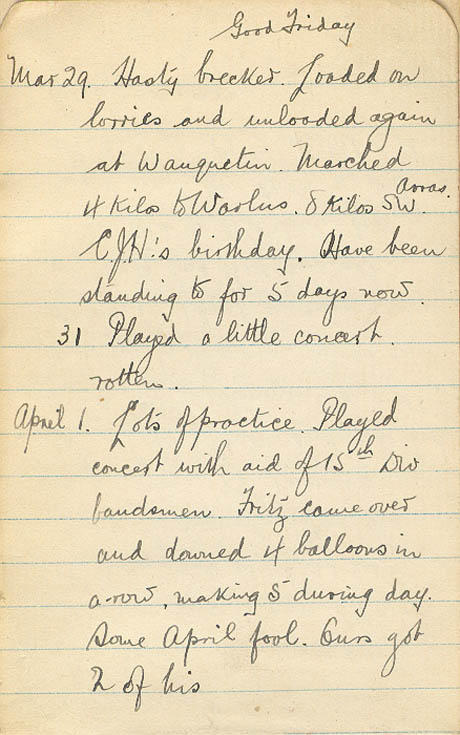 Good Friday
Mar 29. Hasty brecker. Loaded on
lorries and unloaded again
at Wanquetin. Marched
4 kilos to Warlus. 8 kilos SW. Arras.
C.J.H.'s birthday. Have been
standing to for 5 days now.
31 Played a little concert.
rotten.
April 1. Lots of practice. Played
concert with aid of 15th Div
bandsmen. Fritz came over
and downed 4 balloons in
a-row, making 5 during day.
Some April fool. Ours got
2 of his